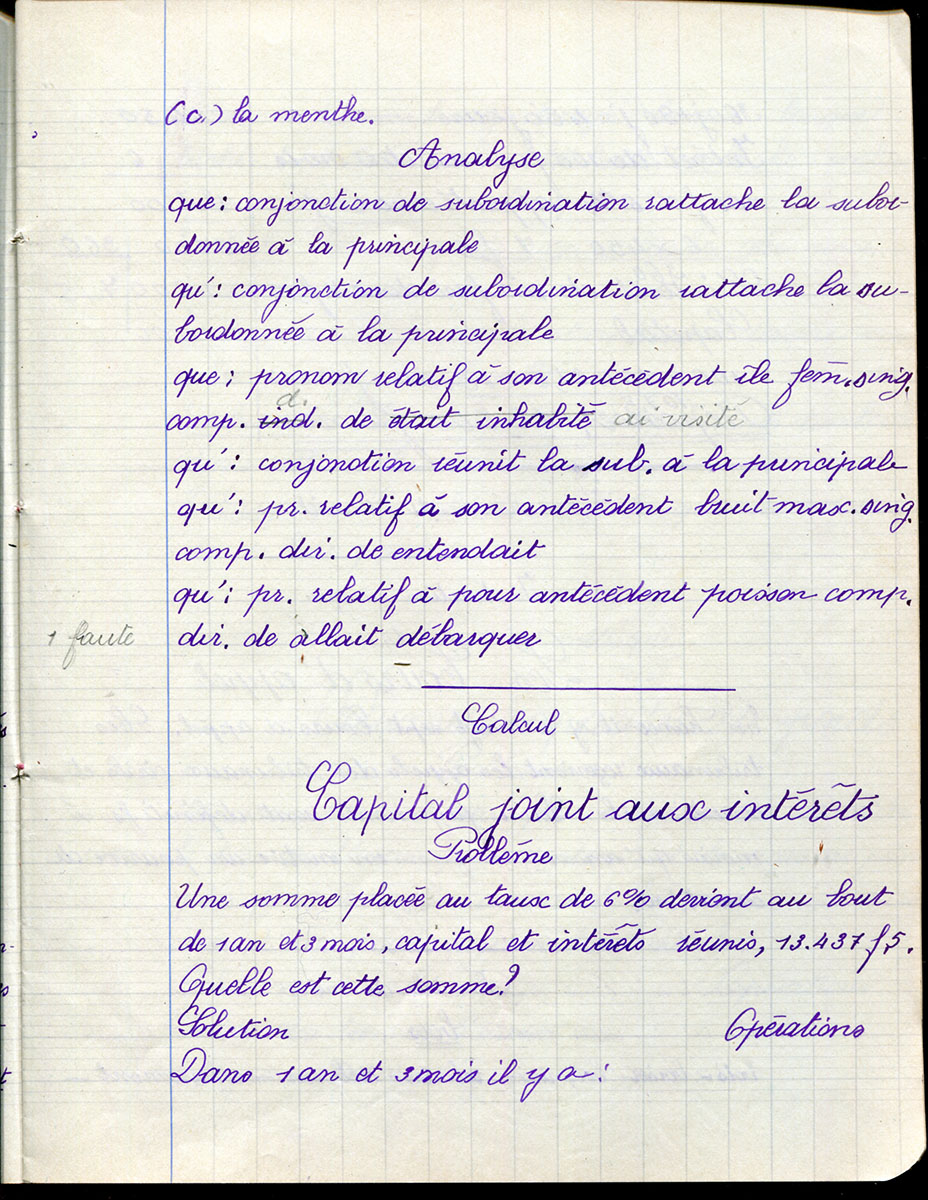 (c) la menthe.
Analyse
que : conjonction de subordination rattache la subor-
donnée à la principale
qu' : conjonction de subordination rattache la su-
bordonnée à la principale
que : pronom relatif à son antécédent île fém. sing.
d.
comp. ind. de était inhabité ai visité
qu' : conjonction réunit la sub. à la principale
qu' : pr. relatif à son antécédent bruit masc. sing.
comp. dir. de entendait
qu' : pr. relatif à pour antécédent poisson comp.
1 faute dir. de allait débarquer
Calcul
Capital joint aux intérêts
Problème
Une somme placée au taux de 6% devient au bout
de 1 an et 3 mois, capital et intérêts réunis, 13.437 f,5.
Quelle est cette somme ?
Solution Opérations
Dans 1 an et 3 mois il y a :